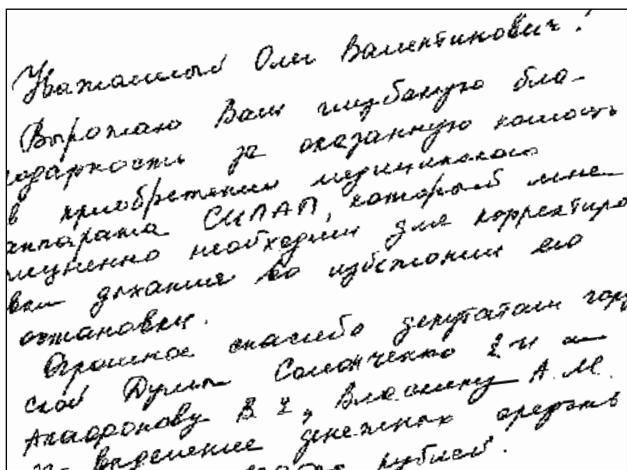 Уважаемый Олег Валентинович!
Выражаю Вам глубокую бла-
годарность за оказанную помость
в приобретении медицинского
аппарата СИПАП, который мне
жизненно необходим для корректиро
вки дыхания во избежании его
остановки.
Огромное спасибо депутатам горо
ской Думы Соломченко
В. , Власкину А.М.
за выделение денежных средств
рублей.